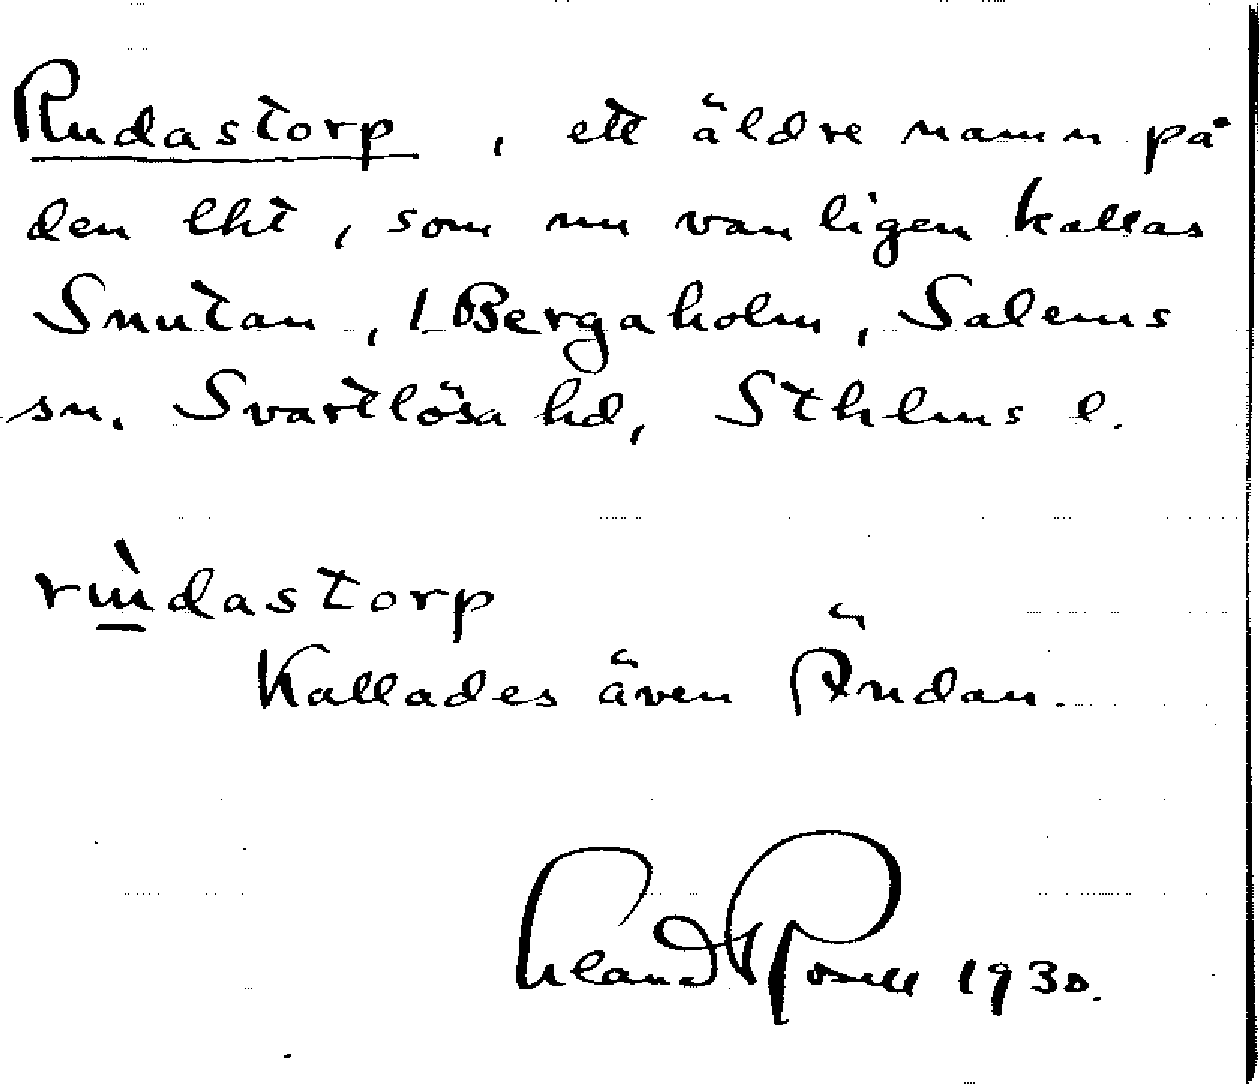 Rudastorp, ett äldre namn på
den lht, som nu vanligen kallas
Snutan, 1 Bergaholm, Salems
sn. Svartlösa hd, Sthlms l.
rùdastorp
Kallades även Ändan.
Erland Rosell 1930.